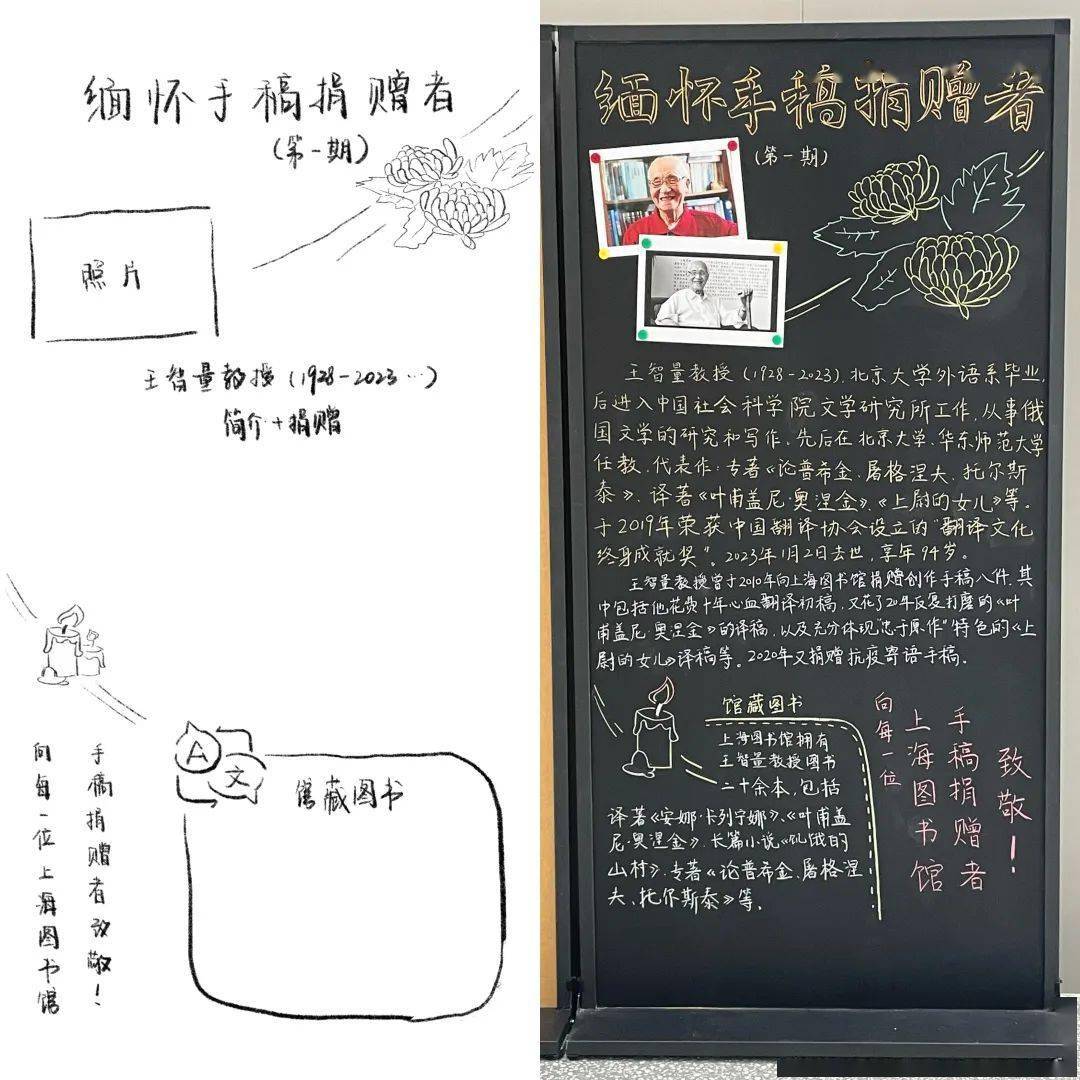 缅怀手稿捐赠者
(第一期)
照片
王智量教授(1928-2023…)
简介+捐赠
A
文
馆藏图书
向每一位上海图书馆
手稿捐赠者致敬!
缅怀手稿捐赠者
(第一期)
王智量教授(1928-2023),北京大学外语系毕业,
后进入中国社会科学院文学研究所工作,从事俄
国文学的研究和写作。先后在北京大学、华东师范大学
任教。代表作:专著《论普希金、屠格涅夫、托尔斯
泰》、译著《叶甫盖尼·奥涅金》、《上尉的女儿》等。
于2019年荣获中国翻译协会设立的“翻译文化
终身成就奖”。2023年1月2日去世,享年94岁。
王智量教授曾于2010年向上海图书馆捐赠创作手稿八件,其
中包括他花费十年心血翻译初稿,又花了20年反复打磨的《叶
甫盖尼·奥涅金》的译稿,以及充分体现“忠于原作”特色的《上
尉的女儿》译稿等。2020年又捐赠抗疫寄语手稿。
馆藏图书
上海图书馆拥有
王智量教授图书
二十余本,包括
译著《安娜·卡列宁娜》、《叶甫盖
尼·奥涅金》、长篇小说《饥饿的
山村》、专著《论普希金、屠格涅
夫、托尔斯泰》等。
向每一位
上海图书馆
手稿捐赠者
致敬!